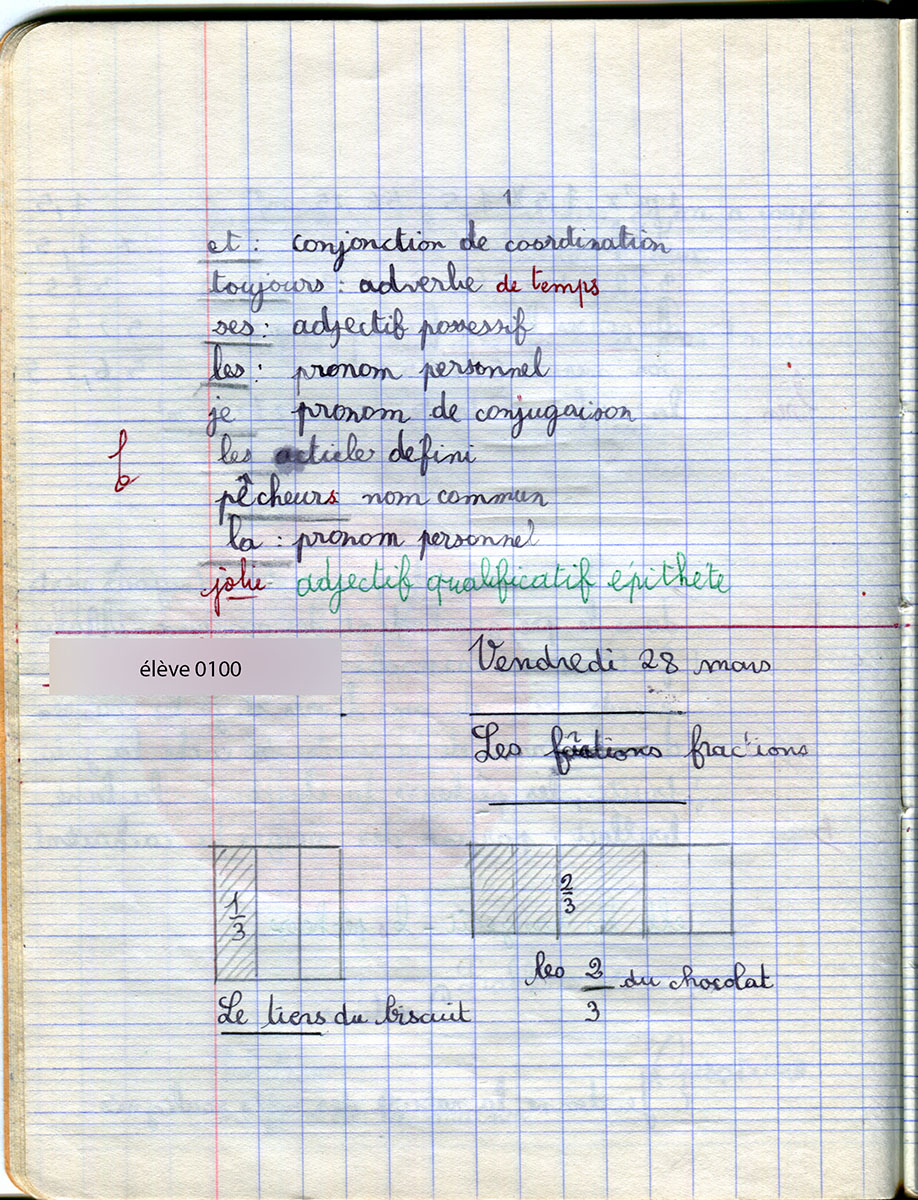 1
et : conjonction de coordination
toujours : adverbe de temps
ses : adjectif possessif
les : pronom personnel
je pronom de conjugaison
les article defini
pêcheurs nom commun
la : pronom personnel
jolie adjectif qualificatif épithète
élève 0100
Vendredi 28 mars
Les fractions
1/3
2/3
les 2/3 du chocolat
Le tiers du biscuit